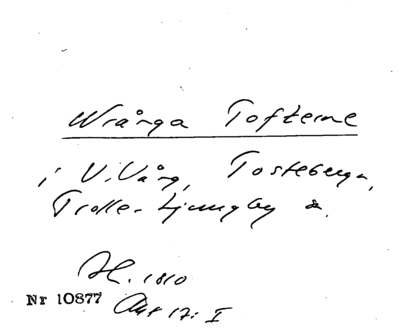 Wrånga Tofterne
i V. Vång, Tosteberga,
Trolle-Ljungby a.
H. 1810
Nr 10877 Akt 17: I